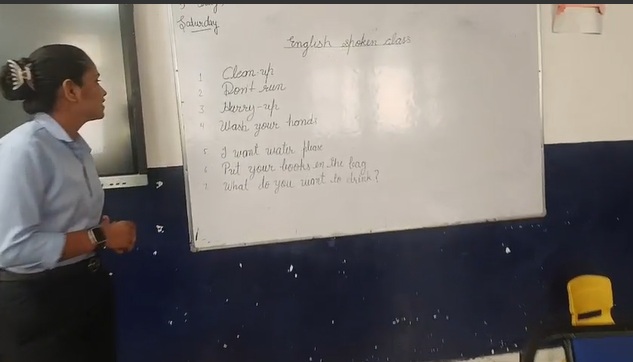 Saturday
English spoken class
1 Clean-up
2 Don't run
3 Hurry-up
4 Wash your hands
5. I want water please
6. Put your books in the bag
7. What do you want to drink?